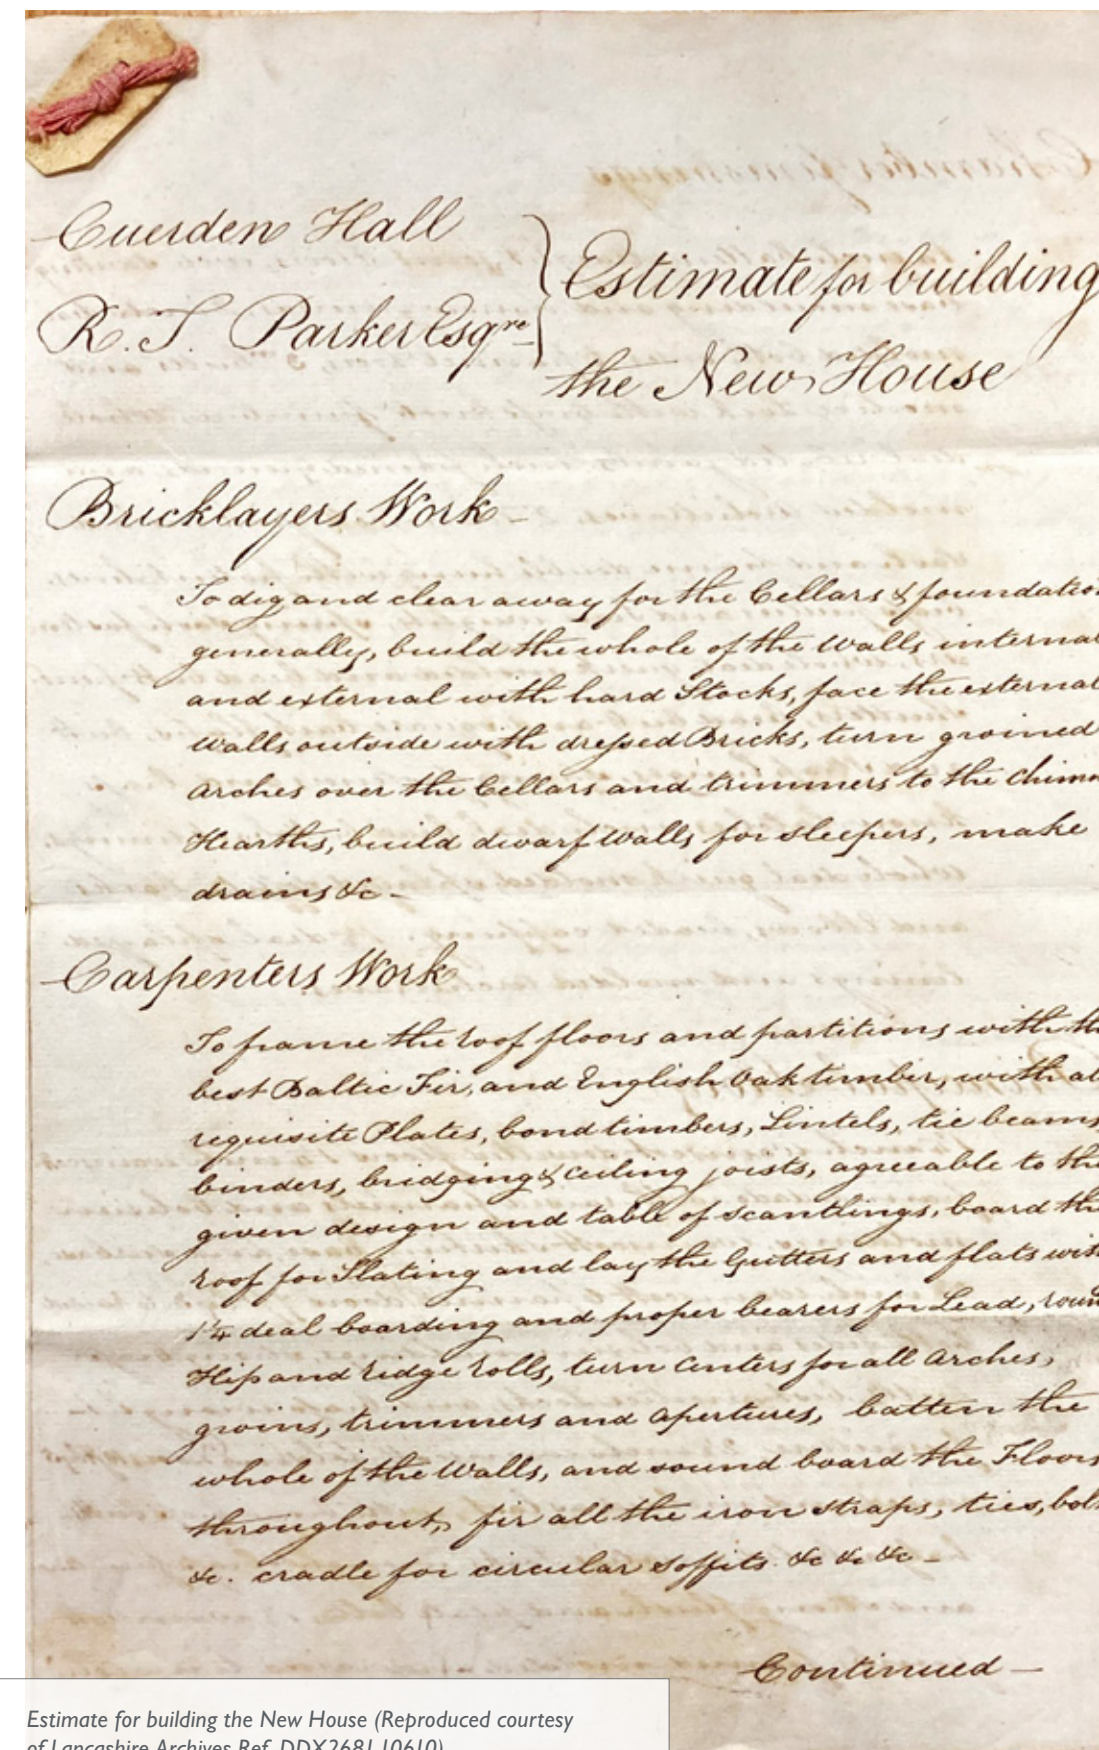 Cuerden Hall
R. T. Parker Esqre
Estimate for building
the New House
Bricklayers Work -
To dig and clear away for the Cellars & foundatio
generally, build the whole of the Walls interna
and external with hard Stocks, face the external
Walls outside with dressed Bricks, turn groined
Arches over the Cellars and trimmers to the Chim
Hearths, build dwarf Walls for sleepers, make
drains &c -
Carpenters Work
To frame the roof floors and partitions with th
best Baltic Fir, and English Oak timber, with al
requisite Plates, bond timbers, Lintels, tie beams,
binders, bridging & ceiling joists, agreeable to the
given design and table of scantlings, board the
roof for Slating and lay the Gutters and flats wit
1¼ deal boarding and proper bearers for Lead, roun
Hip and ridge rolls, turn Centers for all Arches,
groins, trimmers and apertures, batten the
whole of the Walls, and sound board the Floors
throughout, fix all the iron straps, ties, bol
&c. cradle for circular soffits &c &c &c -
Continued -
Estimate for building the New House (Reproduced courtesy
of Lancashire Archives Ref. DDX2681 10610)